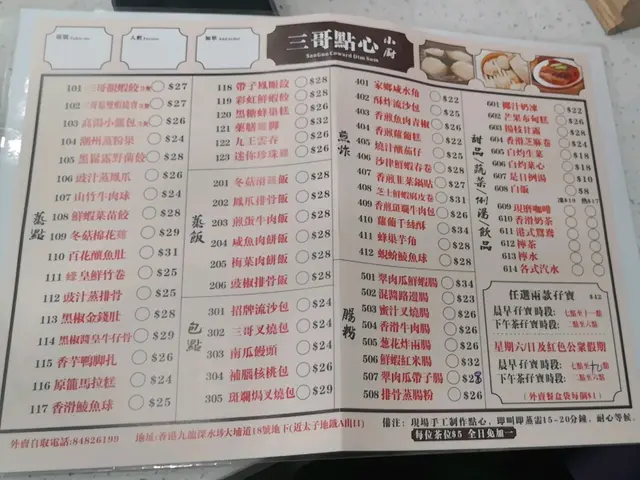 三哥點心小廚
SanGor Coward Dim Sum
蒸點
101 三哥靚蝦餃 $27
103 高湯小籠包 $26
104 潮州蒸粉粿 $24
105 黑羅露野菌餃 $28
106 豉汁蒸鳳爪 $26
107 山竹牛肉球 $24
108 鮮蝦菜苗餃 $28
109 冬菇棉花雞 $29
110 百花釀魚肚 $31
111 蜂皇鮮竹卷 $25
112 豉汁蒸排骨 $25
113 黑椒金錢肚 $28
114 黑椒醬皇牛仔骨 $29
115 香芋鴨脚扎 $26
116 原籠馬拉糕 $24
117 香滑鯪魚球 $25
118 帶子鳳眼餃 $28
119 彩虹鮮蝦餃 $28
120 黑糖蜂巢糕 $26
122 九王雲吞 $26
123 迷你珍珠雞 $26
蒸飯
202 鳳爪排骨飯 $28
203 煎蛋牛肉飯 $28
204 咸魚肉餅飯 $28
205 梅菜肉餅飯 $28
206 豉椒排骨飯 $28
包點
301 招牌流沙包 $24
302 三哥叉燒包 $24
303 南瓜饅頭 $24
304 補腦核桃包 $26
305 斑斕焗叉燒包 $29
煎炸
401 家鄉咸水角 $22
402 酥炸流沙包 $25
403 香煎魚肉青椒 $26
404 香煎蘿蔔糕 $22
405 燒汁釀茄仔 $25
406 沙律鮮蝦春卷 $28
407 香煎韭菜鍋貼 $27
408 芝士鮮蝦腐皮卷 $31
409 香煎斑斕牛肉包 $26
410 蘿蔔千絲酥 $34
411 蜂巢芋角 $28
412 蜆蚧鯪魚球 $28
腸粉
501 翠肉瓜鮮蝦腸 $34
502 混醬路邊腸 $23
503 蜜汁叉燒腸 $26
504 香滑牛肉腸 $26
505 蔥花炸兩腸 $26
506 鮮蝦紅米腸 $32
507 翠肉瓜帶子腸
508 排骨蒸腸粉 $26
甜品/蔬菜/例湯/飲品
601 椰汁奶凍 $22
602 芒果布甸 $26
603 楊枝甘露 $28
604 香滑芝麻卷 $24
605 白灼生菜 $18
606 白灼菜心 $18
607 是日例湯 $10
608 白飯 $8
凍$19 熱$17
609 現磨咖啡
610 香滑奶茶
611 港式鴛鴦
612 檸茶
613 檸水
614 各式汽水
任選兩款孖寶 $42
晨早孖寶時段: 七點至十一點
下午茶孖寶時段: 二點至六點
星期六日及紅色公眾假期
晨早孖寶時段: 七點至九點
下午茶孖寶時段: 二點至六點
(外賣餐盒每個$1)
外賣自取電話:84826199 地址:香港九龍深水埗大埔道18號地下(近太子地鐵A出口)
備注: 現場手工制作點心, 即叫即蒸需15-20分鐘, 耐心等候.
每位茶位$5 全日免加一